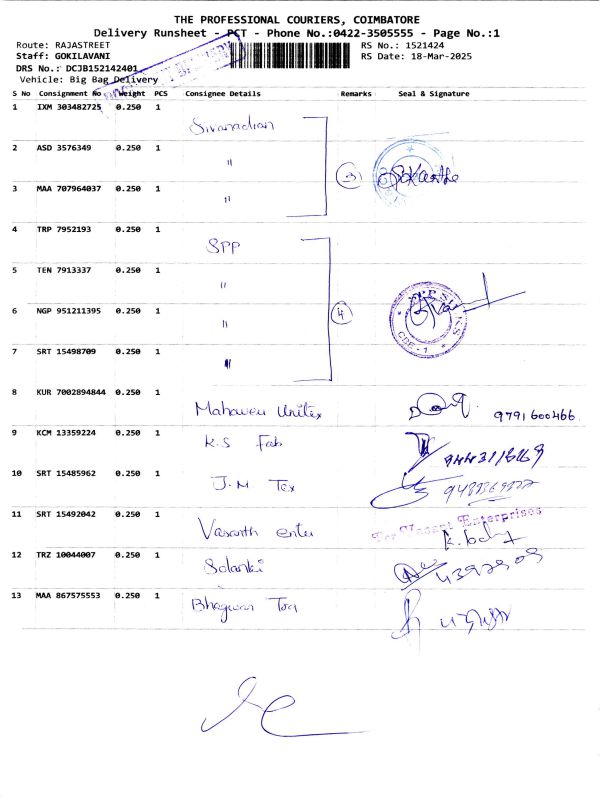 THE PROFESSIONAL COURIERS, COIMBATORE
Delivery Runsheet - PCT - Phone No.:0422-3505555 - Page No.:1
Route: RAJASTREET RS No.: 1521424
Staff: GOKILAVANI RS Date: 18-Mar-2025
DRS No.: DCJB152142401
Vehicle: Big Bag Delivery
S No Consignment No Weight PCS Consignee Details Remarks Seal & Signature
1 IXM 303482725 0.250 1
2 ASD 3576349 0.250 1 "
3 MAA 707964037 0.250 1 " 3
4 TRP 7952193 0.250 1 SPP
5 TEN 7913337 0.250 1 "
6 NGP 951211395 0.250 1 " 4
CBE-1
7 SRT 15498709 0.250 1 "
8 KUR 7002894844 0.250 1 Unitex 9791600466
9 KCM 13359224 0.250 1 K.S Fab
10 SRT 15485962 0.250 1 J.M Tex
11 SRT 15492042 0.250 1 Vasanth enter For Vasant Enterprises
12 TRZ 10044007 0.250 1 Solanki
13 MAA 867575553 0.250 1 Bhagwan